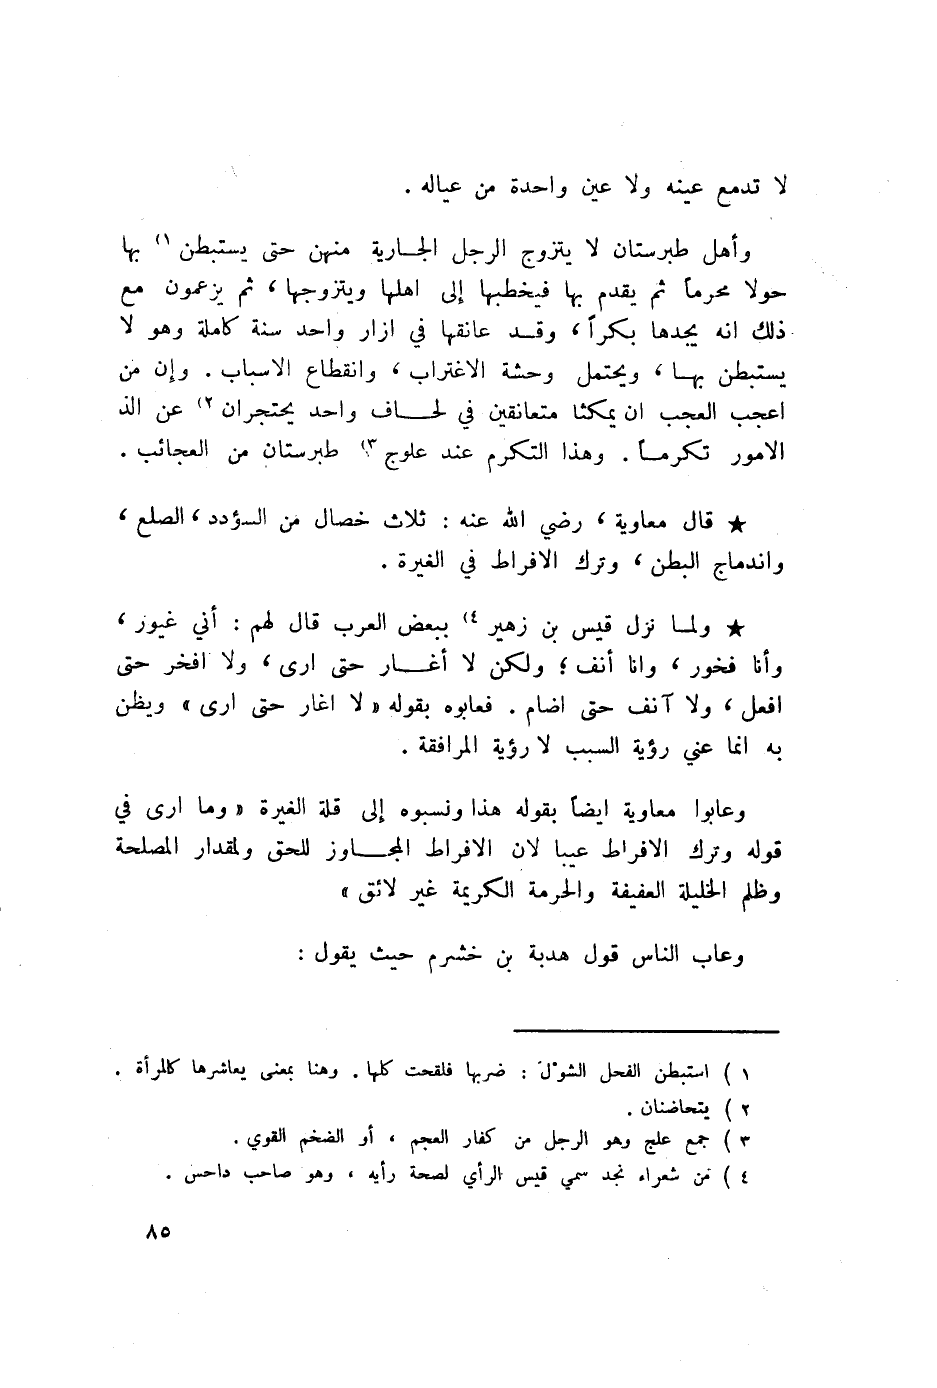 لا تدمع عينه ولا عين واحدة من عياله .
وأهل طبرستان لا يتزوج الرجل الجـارية منهن حتى يستبطن ١) بها
حولا محرماً ثم يقدم بها فيخطبها إلى اهلها ويتزوجها ، ثم يزعمون مع
ذلك انه يجدها بكراً ، وقـد عانقها في ازار واحد سنة كاملة وهو لا
يستبطن بهـا ، ويحتمل وحشة الاغتراب ، وانقطاع الاسباب . وإن من
اعجب العجب ان يمكثا متعانقين في لحـاف واحد يحتجران ٢) عن الذ
الامور تكرمـاً . وهذا التكرم عند علوج ٣) طبرستان من العجائب .
★ قال معاوية ، رضي الله عنه : ثلاث خصال من السؤدد ، الصلع ،
واندماج البطن ، وترك الافراط في الغيرة .
★ ولمـا نزل قيس بن زهير ٤) ببعض العرب قال لهم : أني غيور ،
وأنا فخور ، وانا أنف ؛ ولكن لا أغـار حتى ارى ، ولا افخر حتى
افعل ، ولا آنف حتى اضام . فعابوه بقوله « لا اغار حتى ارى » ويظن
به انما عني رؤية السبب لا رؤية المرافقة .
وعابوا معاوية ايضاً بقوله هذا ونسبوه إلى قلة الغيرة « وما ارى في
قوله وترك الافراط عيبا لان الافراط المجـاوز للحق ولمقدار المصلحة
وظلم الخليلة العفيفة والحرمة الكريمة غير لائق »
وعاب الناس قول هدبة بن خشرم حيث يقول :
١ ) استبطن الفحل الشوْلَ : ضربها فلقحت كلها . وهنا بمعنى يعاشرها كالمرأة .
٢ ) يتحاضنان .
٣ ) جمع علج وهو الرجل من كفار العجم ، أو الضخم القوي .
٤ ) من شعراء نجد سمي قيس الرأي لصحة رأيه ، وهو صاحب داحس .
٨٥